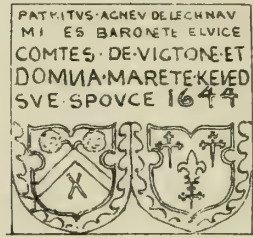 PATRITVS·AGNEV DE LECHNAV
MI ES BARONETE ELVICE
COMTES·DE·VICTONE·ET
DOMNA·MARETE·KEKED
SVE·SPOVCE 1644